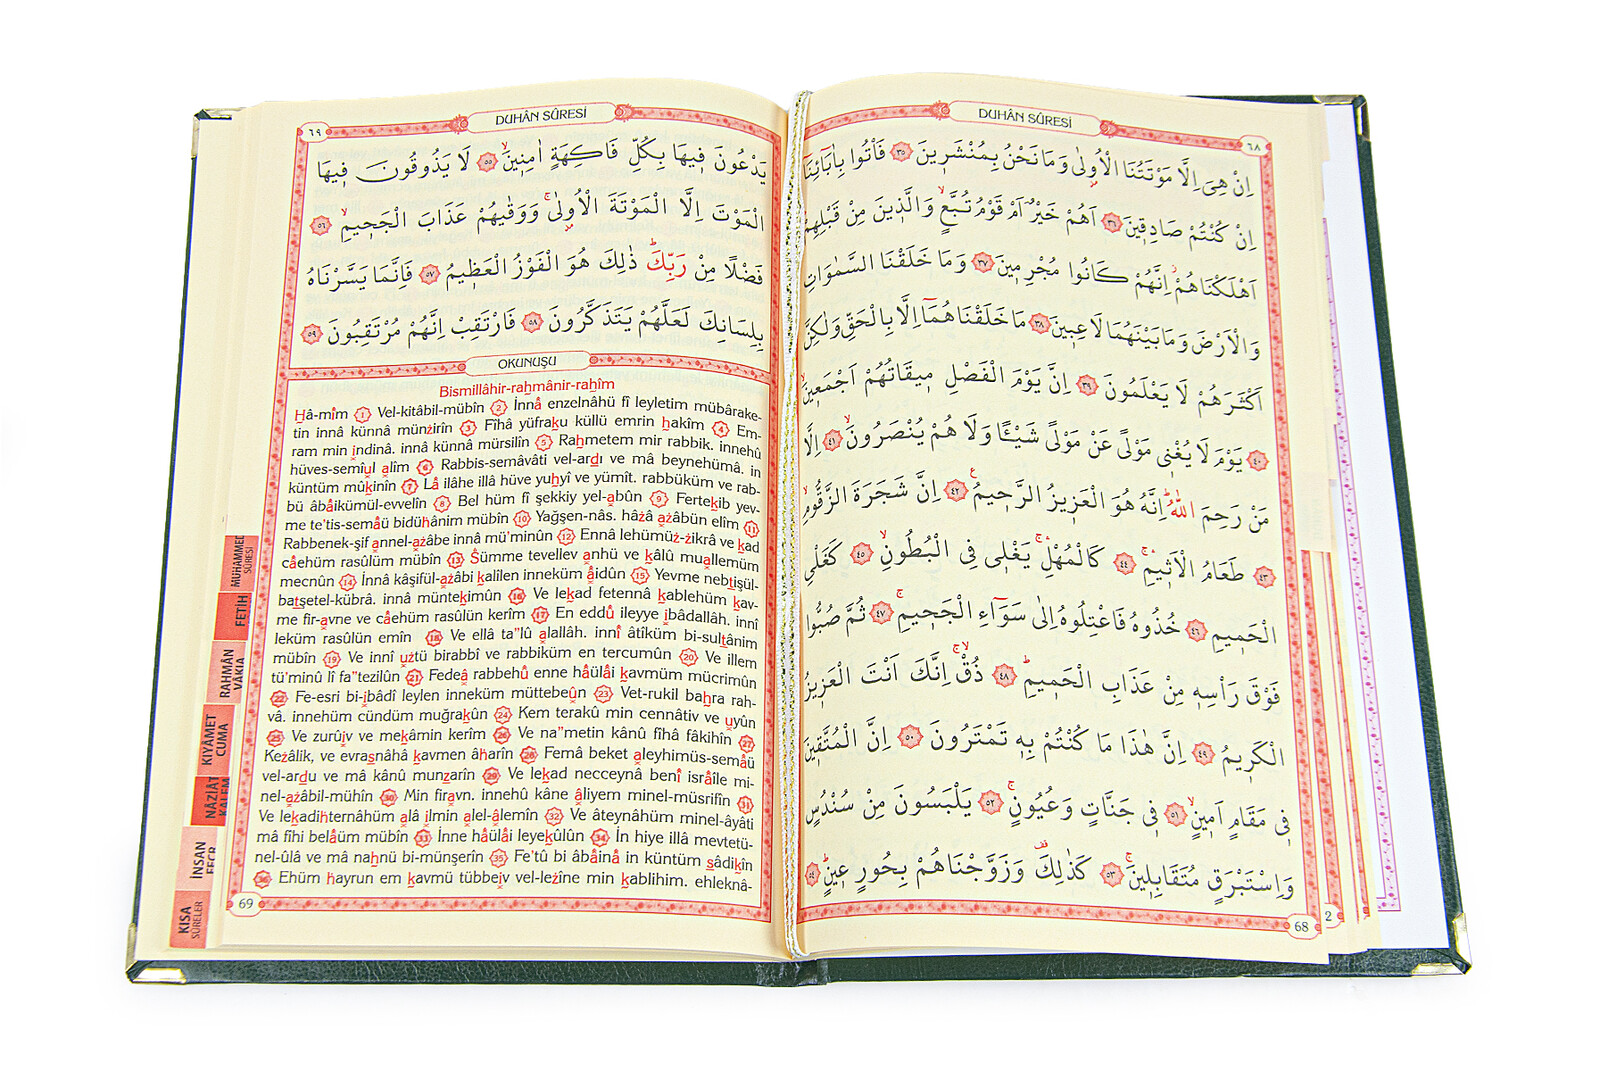 DUHÂN SÛRESİ
٦٨
اِنْ هِىَ اِلَّا مَوْتَتُنَا الْاُو۫لٰى وَمَا نَحْنُ بِمُنْشَر۪ينَ ٣٥ فَأْتُوا بِاٰبَٓائِنَٓا
اِنْ كُنْتُمْ صَادِق۪ينَ ٣٦ اَهُمْ خَيْرٌ اَمْ قَوْمُ تُبَّعٍۙ وَالَّذ۪ينَ مِنْ قَبْلِهِمْ
اَهْلَكْنَاهُمْۘ اِنَّهُمْ كَانُوا مُجْرِم۪ينَ ٣٧ وَمَا خَلَقْنَا السَّمٰوَاتِ
وَالْاَرْضَ وَمَا بَيْنَهُمَا لَاعِب۪ينَ ٣٨ مَا خَلَقْنَاهُمَٓا اِلَّا بِالْحَقِّ وَلٰكِنَّ
اَكْثَرَهُمْ لَا يَعْلَمُونَ ٣٩ اِنَّ يَوْمَ الْفَصْلِ م۪يقَاتُهُمْ اَجْمَع۪ينَۙ
٤٠ يَوْمَ لَا يُغْن۪ى مَوْلًى عَنْ مَوْلًى شَيْـًٔا وَلَا هُمْ يُنْصَرُونَۙ ٤١ اِلَّا
مَنْ رَحِمَ اللّٰهُۜ اِنَّهُ هُوَ الْعَز۪يزُ الرَّح۪يمُ۟ ٤٢ اِنَّ شَجَرَةَ الزَّقُّومِۙ
٤٣ طَعَامُ الْاَث۪يمِۚ ٤٤ كَالْمُهْلِۚ يَغْل۪ى فِى الْبُطُونِۙ ٤٥ كَغَلْىِ
الْحَم۪يمِ ٤٦ خُذُوهُ فَاعْتِلُوهُ اِلٰى سَوَٓاءِ الْجَح۪يمِۚ ٤٧ ثُمَّ صُبُّوا
فَوْقَ رَأْسِه۪ مِنْ عَذَابِ الْحَم۪يمِۜ ٤٨ ذُقْۙ اِنَّكَ اَنْتَ الْعَز۪يزُ
الْكَر۪يمُ ٤٩ اِنَّ هٰذَا مَا كُنْتُمْ بِه۪ تَمْتَرُونَ ٥٠ اِنَّ الْمُتَّق۪ينَ
ف۪ى مَقَامٍ اَم۪ينٍۙ ٥١ ف۪ى جَنَّاتٍ وَعُيُونٍۚ ٥٢ يَلْبَسُونَ مِنْ سُنْدُسٍ
وَاِسْتَبْرَقٍ مُتَقَابِل۪ينَۚ ٥٣ كَذٰلِكَ۠ وَزَوَّجْنَاهُمْ بِحُورٍ ع۪ينٍۜ ٥٤
68
2
DUHÂN SÛRESİ
٦٩
يَدْعُونَ ف۪يهَا بِكُلِّ فَاكِهَةٍ اٰمِن۪ينَۙ ٥٥ لَا يَذُوقُونَ ف۪يهَا
الْمَوْتَ اِلَّا الْمَوْتَةَ الْاُو۫لٰىۚ وَوَقٰيهُمْ عَذَابَ الْجَح۪يمِۙ ٥٦
فَضْلًا مِنْ رَبِّكَۜ ذٰلِكَ هُوَ الْفَوْزُ الْعَظ۪يمُ ٥٧ فَاِنَّمَا يَسَّرْنَاهُ
بِلِسَانِكَ لَعَلَّهُمْ يَتَذَكَّرُونَ ٥٨ فَارْتَقِبْ اِنَّهُمْ مُرْتَقِبُونَ ٥٩
OKUNUŞU
Bismillâhir-rahmânir-rahîm
Hâ-mîm 1 Vel-kitâbil-mübîn 2 İnnâ enzelnâhü fî leyletim mübârake-
tin innâ künnâ münzirîn 3 Fîhâ yüfraku küllü emrin hakîm 4 Em-
ram min indinâ. innâ künnâ mürsilîn 5 Rahmetem mir rabbik. innehû
hüves-semîul alîm 6 Rabbis-semâvâti vel-ardı ve mâ beynehümâ. in
küntüm mûkinîn 7 Lâ ilâhe illâ hüve yuhyî ve yümît. rabbüküm ve rab-
bü âbâikümül-evvelîn 8 Bel hüm fî şekkiy yel-abûn 9 Fertekib yev-
me te'tis-semâü bidühânim mübîn 10 Yağşen-nâs. hâzâ azâbün elîm 11
Rabbenek-şif annel-azâbe innâ mü'minûn 12 Ennâ lehümüz-zikrâ ve kad
câehüm rasûlüm mübîn 13 Sümme tevellev anhü ve kâlû muallemüm
mecnûn 14 İnnâ kâşifül-azâbi kalîlen inneküm âidûn 15 Yevme nebtişül-
batşetel-kübrâ. innâ müntekimûn 16 Ve lekad fetennâ kablehüm kav-
me fir-avne ve câehüm rasûlün kerîm 17 En eddû ileyye ibâdallâh. innî
leküm rasûlün emîn 18 Ve ellâ ta"lû alallâh. innî âtîküm bi-sultânim
mübîn 19 Ve innî uztü birabbî ve rabbiküm en tercumûn 20 Ve illem
tü'minû lî fa"tezilûn 21 Fedeâ rabbehû enne hâülâi kavmüm mücrimûn
22 Fe-esri bi-ibâdî leylen inneküm müttebeûn 23 Vet-rukil bahra rah-
vâ. innehüm cündüm muğrakûn 24 Kem terakû min cennâtiv ve uyûn
25 Ve zurûiv ve mekâmin kerîm 26 Ve na"metin kânû fîhâ fâkihîn 27
Kezâlik, ve evrasnâhâ kavmen âharîn 28 Femâ beket aleyhimüs-semâü
vel-ardu ve mâ kânû munzarîn 29 Ve lekad necceynâ benî isrâîle mi-
nel-azâbil-mühîn 30 Min firavn. innehû kâne âliyem minel-müsrifîn 31
Ve lekadihternâhüm alâ ilmin alel-âlemîn 32 Ve âteynâhüm minel-âyâti
mâ fîhi belâüm mübîn 33 İnne hâülâi leyekûlûn 34 İn hiye illâ mevtetü-
nel-ûlâ ve mâ nahnü bi-münşerîn 35 Fe'tû bi âbâinâ in küntüm sâdikîn
36 Ehüm hayrun em kavmü tübbeiv vel-lezîne min kablihim. ehleknâ-
69
MUHAMMED
SÛRESİ
FETİH
RAHMÂN
VÂKIA
KIYÂMET
CUMA
NÂZİÂT
KALEM
İNSAN
FECR
KISA
SÛRELER